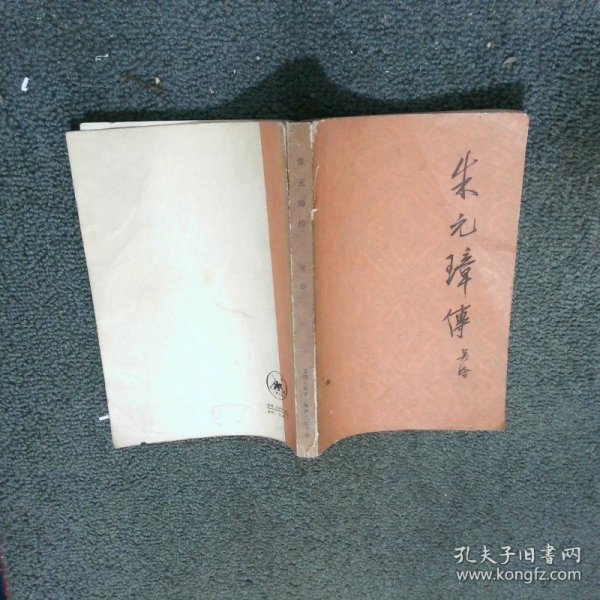 朱元璋傳
吴晗
朱元璋传
吴晗
孔夫子旧书网
www.kongfz.com